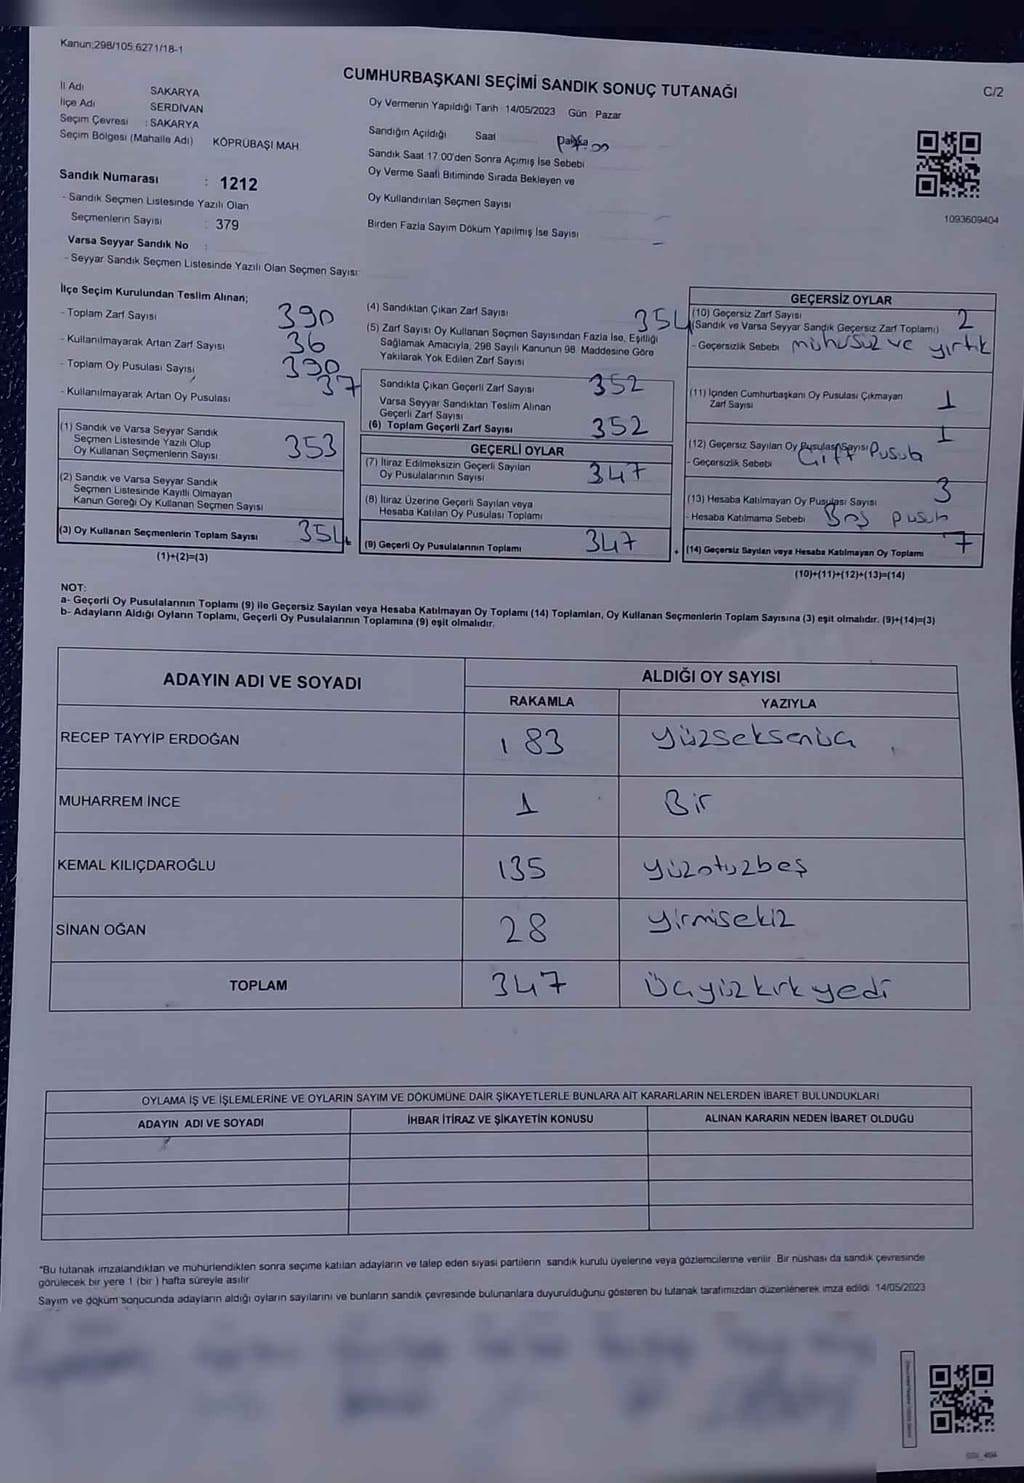 Kanun:298/105,6271/18-1
CUMHURBAŞKANI SEÇİMİ SANDIK SONUÇ TUTANAĞI
C/2
İl Adı SAKARYA
İlçe Adı SERDİVAN
Seçim Çevresi : SAKARYA
Seçim Bölgesi (Mahalle Adı) KÖPRÜBAŞI MAH.
Oy Vermenin Yapıldığı Tarih 14/05/2023 Gün Pazar
Sandığın Açıldığı Saat
Sandık Saat 17:00'den Sonra Açımış İse Sebebi
Oy Verme Saati Bitiminde Sırada Bekleyen ve
Oy Kullandırılan Seçmen Sayısı
Birden Fazla Sayım Döküm Yapılmış İse Sayısı
1093609404
Sandık Numarası : 1212
- Sandık Seçmen Listesinde Yazılı Olan
Seçmenlerin Sayısı : 379
Varsa Seyyar Sandık No :
- Seyyar Sandık Seçmen Listesinde Yazılı Olan Seçmen Sayısı:
İlçe Seçim Kurulundan Teslim Alınan;
- Toplam Zarf Sayısı 390
- Kullanılmayarak Artan Zarf Sayısı 36
- Toplam Oy Pusulası Sayısı 390
- Kullanılmayarak Artan Oy Pusulası 37
(1) Sandık ve Varsa Seyyar Sandık
Seçmen Listesinde Yazılı Olup
Oy Kullanan Seçmenlerin Sayısı 353
(2) Sandık ve Varsa Seyyar Sandık
Seçmen Listesinde Kayıtlı Olmayan
Kanun Gereği Oy Kullanan Seçmen Sayısı
(3) Oy Kullanan Seçmenlerin Toplam Sayısı 354
(1)+(2)=(3)
(4) Sandıktan Çıkan Zarf Sayısı 354
(5) Zarf Sayısı Oy Kullanan Seçmen Sayısından Fazla İse, Eşitliği
Sağlamak Amacıyla, 298 Sayılı Kanunun 98. Maddesine Göre
Yakılarak Yok Edilen Zarf Sayısı
Sandıkta Çıkan Geçerli Zarf Sayısı 352
Varsa Seyyar Sandıktan Teslim Alınan
Geçerli Zarf Sayısı
(6) Toplam Geçerli Zarf Sayısı 352
GEÇERLİ OYLAR
(7) İtiraz Edilmeksizin Geçerli Sayılan
Oy Pusulalarının Sayısı 347
(8) İtiraz Üzerine Geçerli Sayılan veya
Hesaba Katılan Oy Pusulası Toplamı
(9) Geçerli Oy Pusulalarının Toplamı 347
GEÇERSİZ OYLAR
(10) Geçersiz Zarf Sayısı 2
(Sandık ve Varsa Seyyar Sandık Geçersiz Zarf Toplamı)
- Geçersizlik Sebebi mühüsüz ve yırtık
(11) İçinden Cumhurbaşkanı Oy Pusulası Çıkmayan
Zarf Sayısı 1
(12) Geçersiz Sayılan Oy Pusulası Sayısı 1
- Geçersizlik Sebebi Çift Pusula
(13) Hesaba Katılmayan Oy Pusulası Sayısı 3
- Hesaba Katılmama Sebebi Boş pusula
(14) Geçersiz Sayılan veya Hesaba Katılmayan Oy Toplamı 7
(10)+(11)+(12)+(13)=(14)
NOT:
a- Geçerli Oy Pusulalarının Toplamı (9) ile Geçersiz Sayılan veya Hesaba Katılmayan Oy Toplamı (14) Toplamları, Oy Kullanan Seçmenlerin Toplam Sayısına (3) eşit olmalıdır. (9)+(14)=(3)
b- Adayların Aldığı Oyların Toplamı, Geçerli Oy Pusulalarının Toplamına (9) eşit olmalıdır.
ADAYIN ADI VE SOYADI ALDIĞI OY SAYISI
RAKAMLA YAZIYLA
RECEP TAYYİP ERDOĞAN 183 yüzseksenüç
MUHARREM İNCE 1 Bir
KEMAL KILIÇDAROĞLU 135 yüzotuzbeş
SİNAN OĞAN 28 yirmisekiz
TOPLAM 347 Üçyüzkırkyedi
OYLAMA İŞ VE İŞLEMLERİNE VE OYLARIN SAYIM VE DÖKÜMÜNE DAİR ŞİKAYETLERLE BUNLARA AİT KARARLARIN NELERDEN İBARET BULUNDUKLARI
ADAYIN ADI VE SOYADI İHBAR İTİRAZ VE ŞİKAYETİN KONUSU ALINAN KARARIN NEDEN İBARET OLDUĞU
"Bu tutanak imzalandıktan ve mühürlendikten sonra seçime katılan adayların ve talep eden siyasi partilerin sandık kurulu üyelerine veya gözlemcilerine verilir. Bir nüshası da sandık çevresinde
görülecek bir yere 1 (bir ) hafta süreyle asılır
Sayım ve döküm sonucunda adayların aldığı oyların sayılarını ve bunların sandık çevresinde bulunanlara duyurulduğunu gösteren bu tutanak tarafımızdan düzenlenerek imza edildi. 14/05/2023